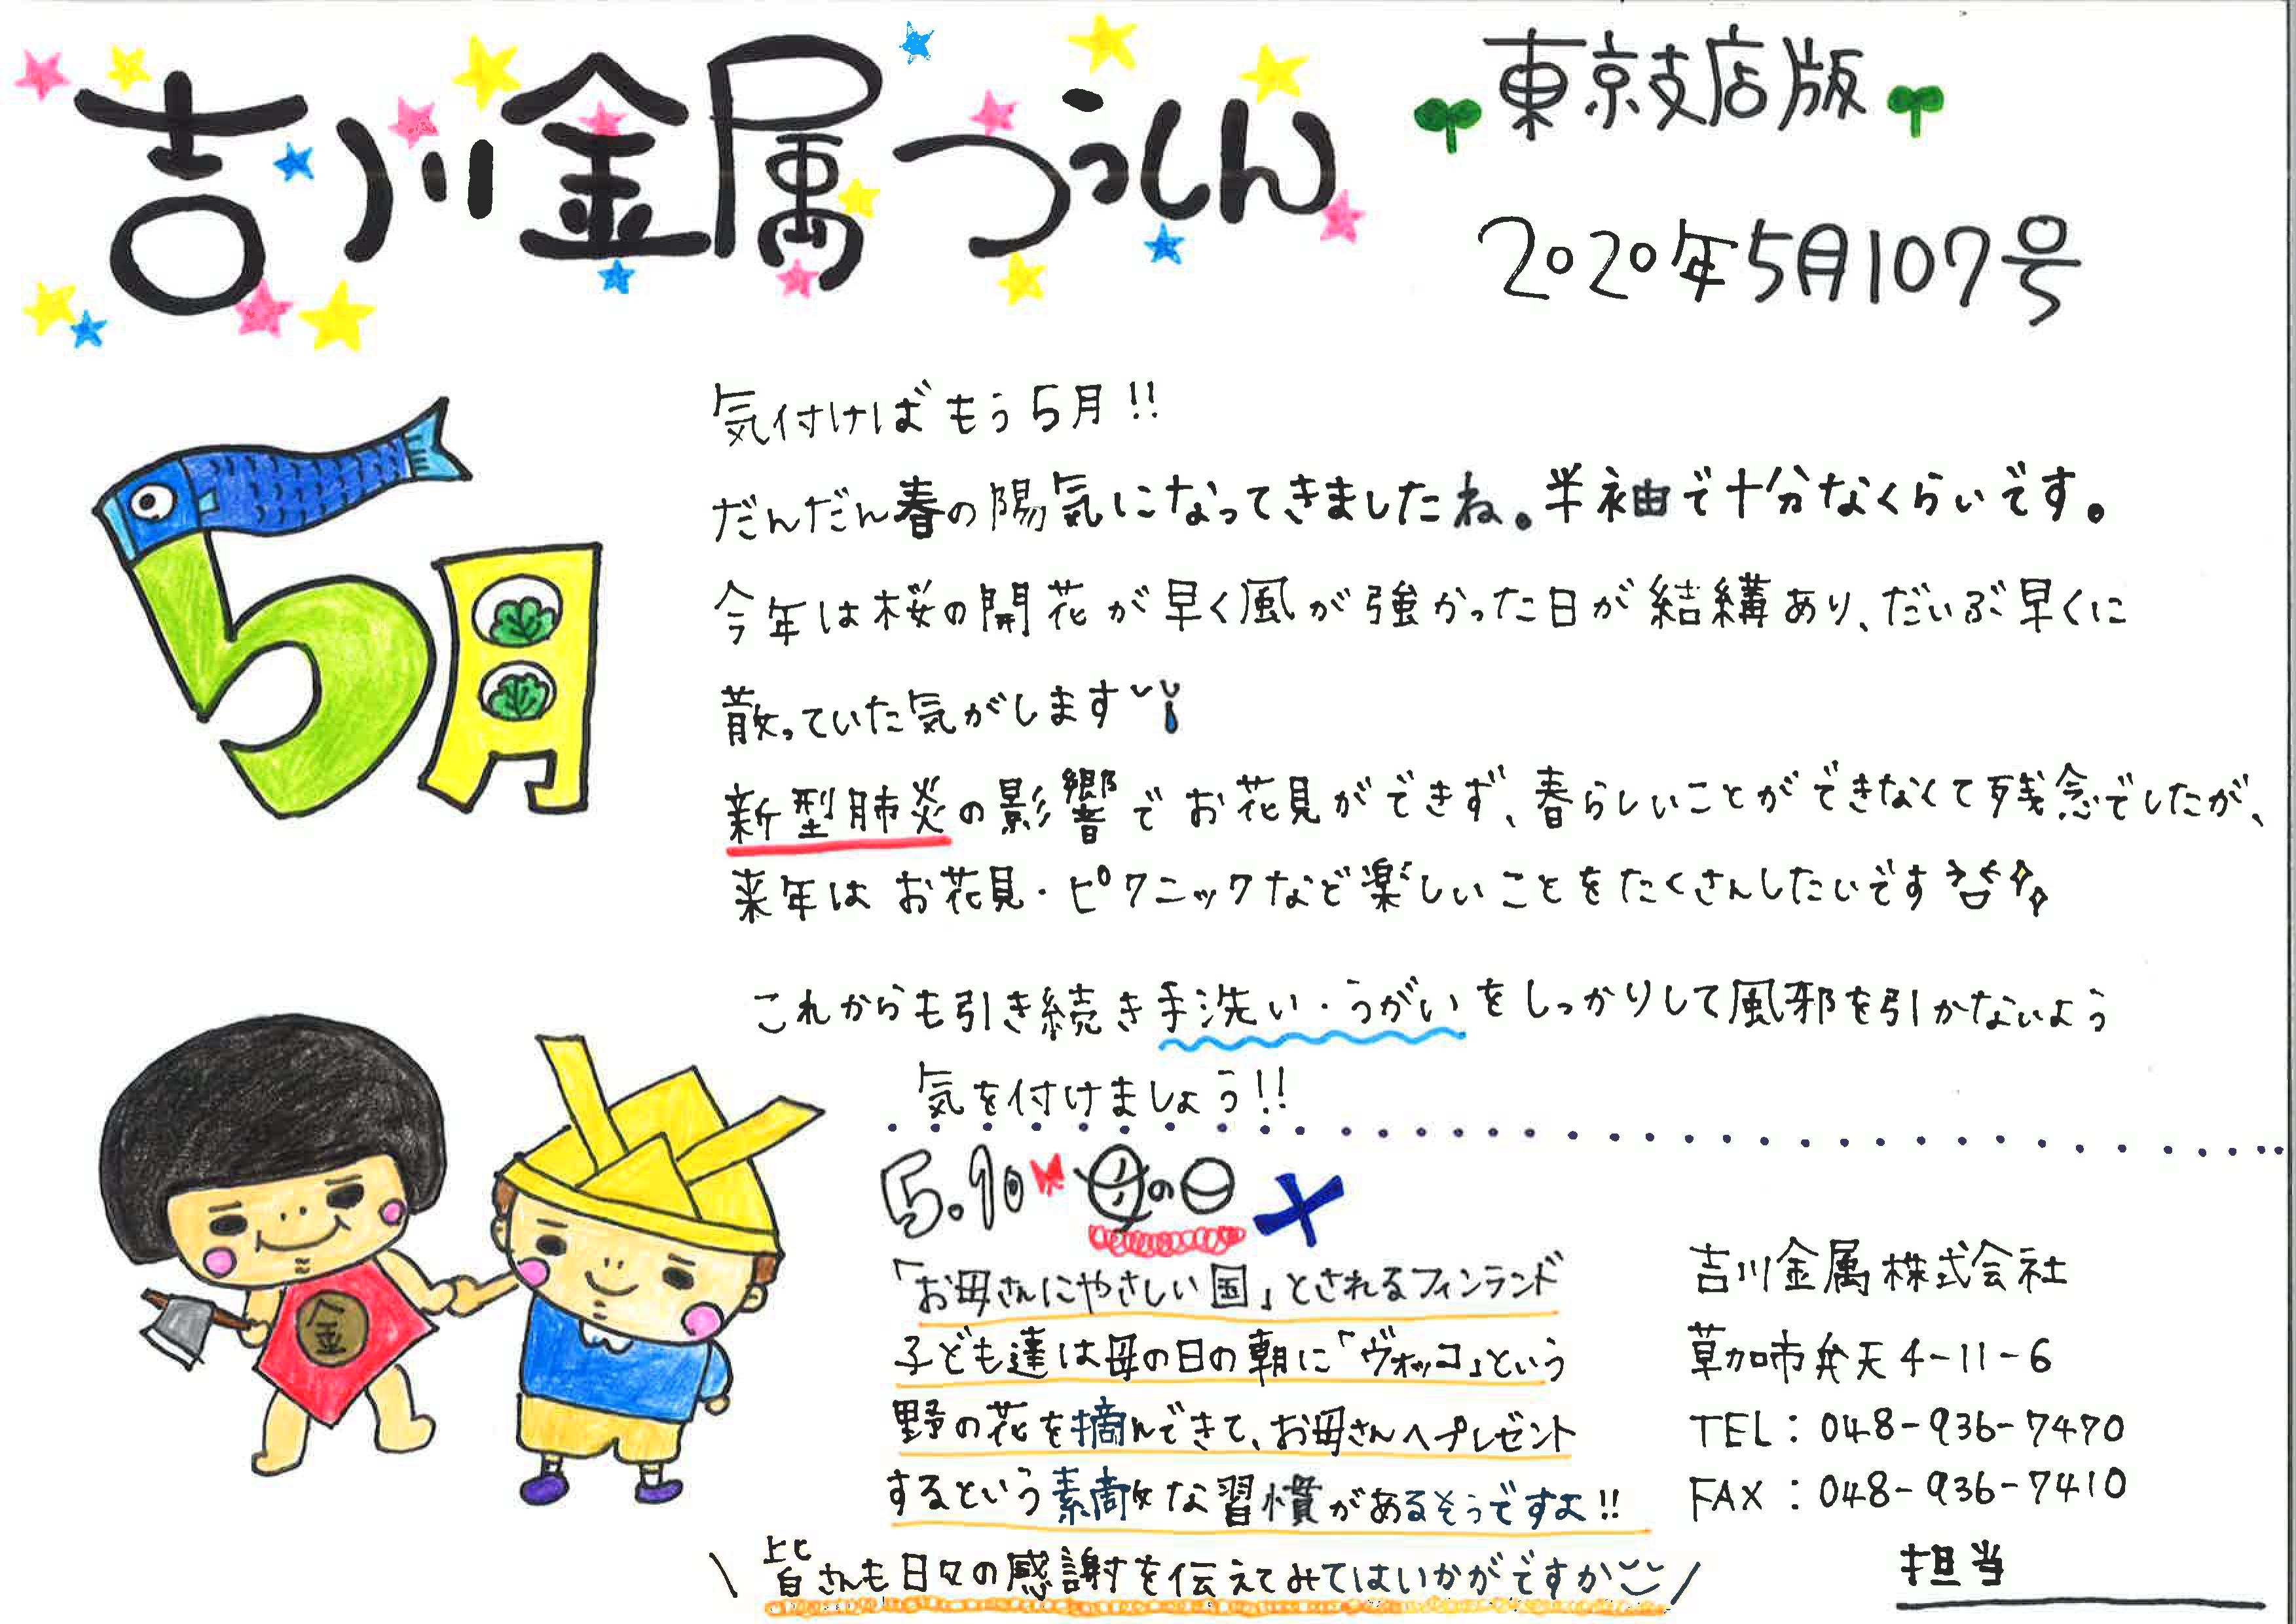 吉川金属つうしん
東京支店版
2020年5月107号
5月
気付けばもう5月!!
だんだん春の陽気になってきましたね。半袖で十分なくらいです。
今年は桜の開花が早く風が強かった日が結構あり、だいぶ早くに
散っていた気がします
新型肺炎の影響でお花見ができず、春らしいことができなくて残念でしたが、
来年はお花見・ピクニックなど楽しいことをたくさんしたいです
これからも引き続き手洗い・うがいをしっかりして風邪を引かないよう
気を付けましょう!!
金
5.10 母の日
「お母さんにやさしい国」とされるフィンランド
子ども達は母の日の朝に「ヴォッコ」という
野の花を摘んできて、お母さんへプレゼント
するという素敵な習慣があるそうですよ!!
\ 皆さんも日々の感謝を伝えてみてはいかがですか /
吉川金属株式会社
草加市弁天4-11-6
TEL:048-936-7470
FAX:048-936-7410
担当